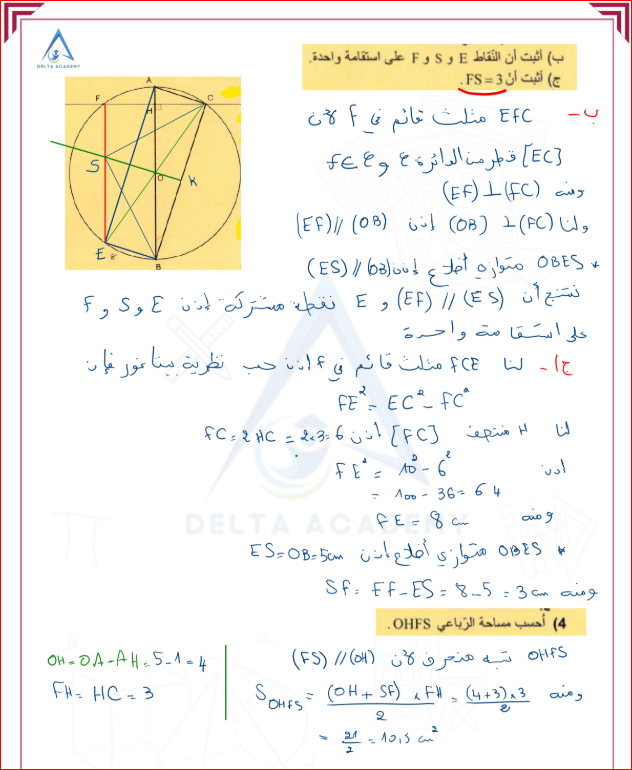 DELTA ACADEMY
ب) أثبت أن النّقاط E و S و F على استقامة واحدة.
ج) أثبت أنّ FS = 3.
A
F
C
H
S
O
K
E
B'
B
ب - EFC مثلث قائم في F لأن
[EC] قطر من الدائرة ع و F∈ع
ومنه (EF) ⊥ (FC)
ولنا (FC) ⊥ (OB) إذن (OB) // (EF)
* OBES متوازي أضلاع إذن (OB) // (ES)
نستنتج أن (ES) // (EF) و E نقطة مشتركة إذن E و S و F
على استقامة واحدة
ج) - لنا FCE مثلث قائم في F إذن حسب نظرية بيتاغور فإن
FE² = EC² - FC²
لنا H منتصف [FC] إذن FC = 2HC = 2×3 = 6
إذن FE² = 10² - 6²
= 100 - 36 = 64
ومنه FE = 8 cm
DELTA ACADEMY
* OBES متوازي أضلاع إذن ES = OB = 5cm
ومنه SF = EF - ES = 8 - 5 = 3 cm
4) أحسب مساحة الرّباعي OHFS.
OHFS شبه منحرف لأن (FS) // (OH)
ومنه S_OHFS = (OH + SF) × FH / 2 = (4+3)×3 / 2
= 21/2 = 10,5 cm²
OH = OA - AH = 5 - 1 = 4
FH = HC = 3